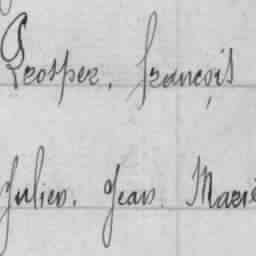 Prosper, François
Julien, Jean Marie